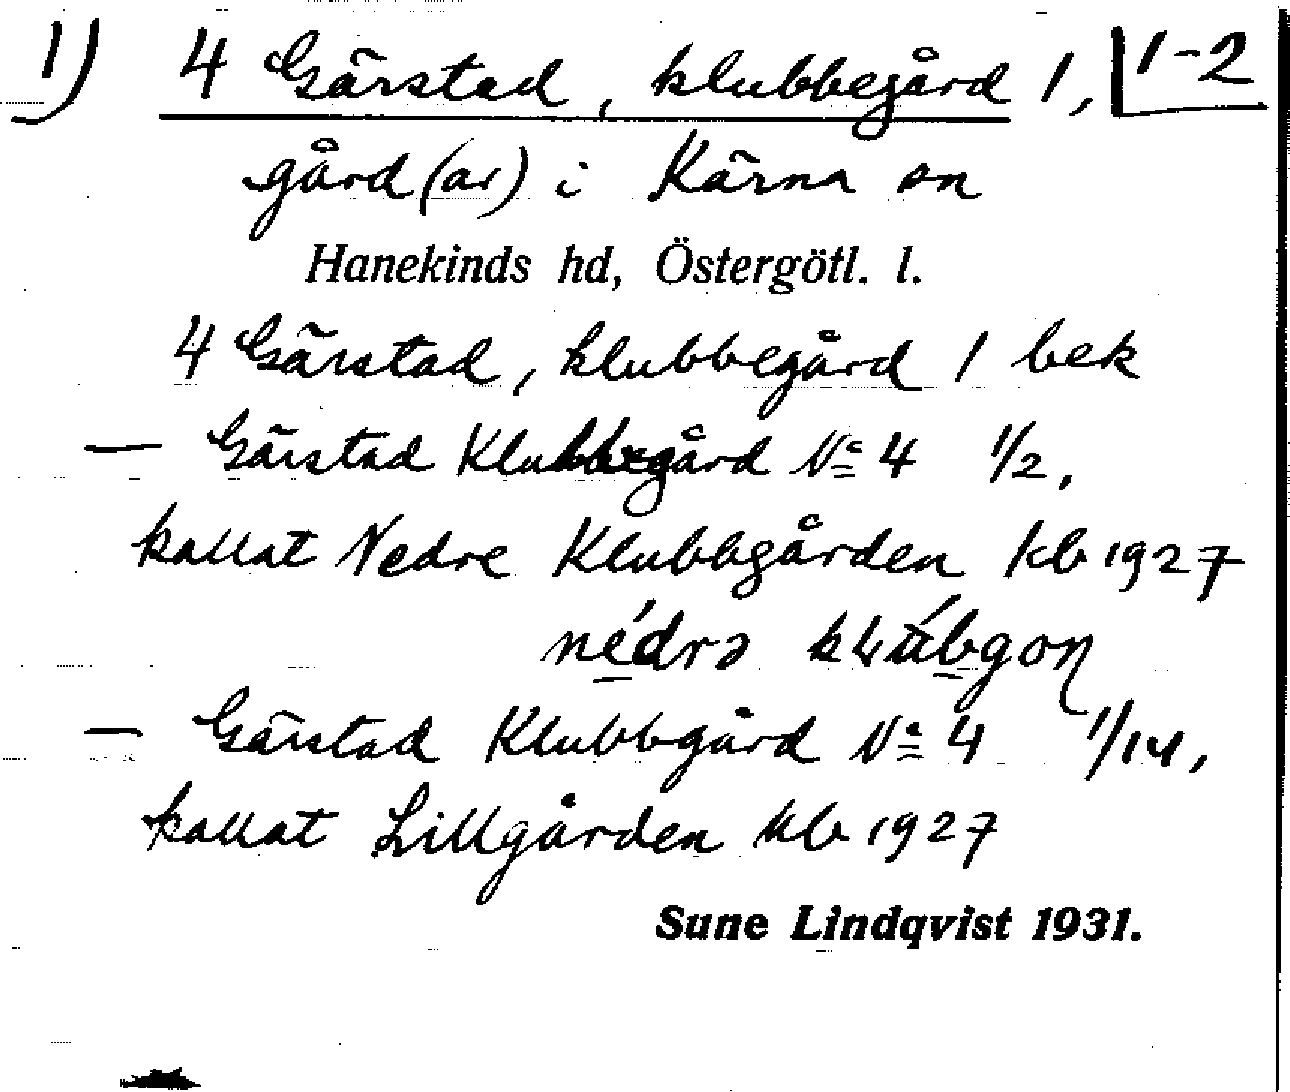 1) 4 Gärstad, klubbegård 1, 1-2
gård(ar) i Kärna sn
Hanekinds hd, Östergötl. l.
4 Gärstad, klubbegård 1 bek
— Gärstad Klubbegård No 4 1/2,
kallat Nedre Klubbgården kb 1927
nédrə
— Gärstad Klubbgård No 4 1/14,
kallat Lillgården kb 1927
Sune Lindqvist 1931.